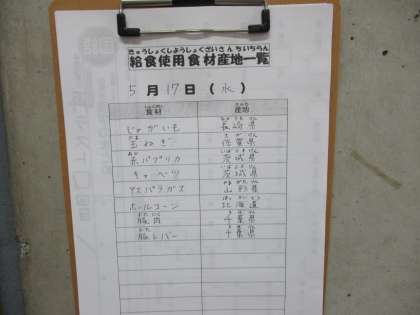 きゅうしょくしようしょくざいさんちいちらん
給食使用食材産地一覧
5月17日(水)
食材 産地
じゃがいも 長崎県
玉ねぎ 佐賀県
赤パプリカ 茨城県
キャベツ 茨城県
アスパラガス 山形県
ホールコーン 北海道
豚肉 千葉県
豚レバー 千葉県